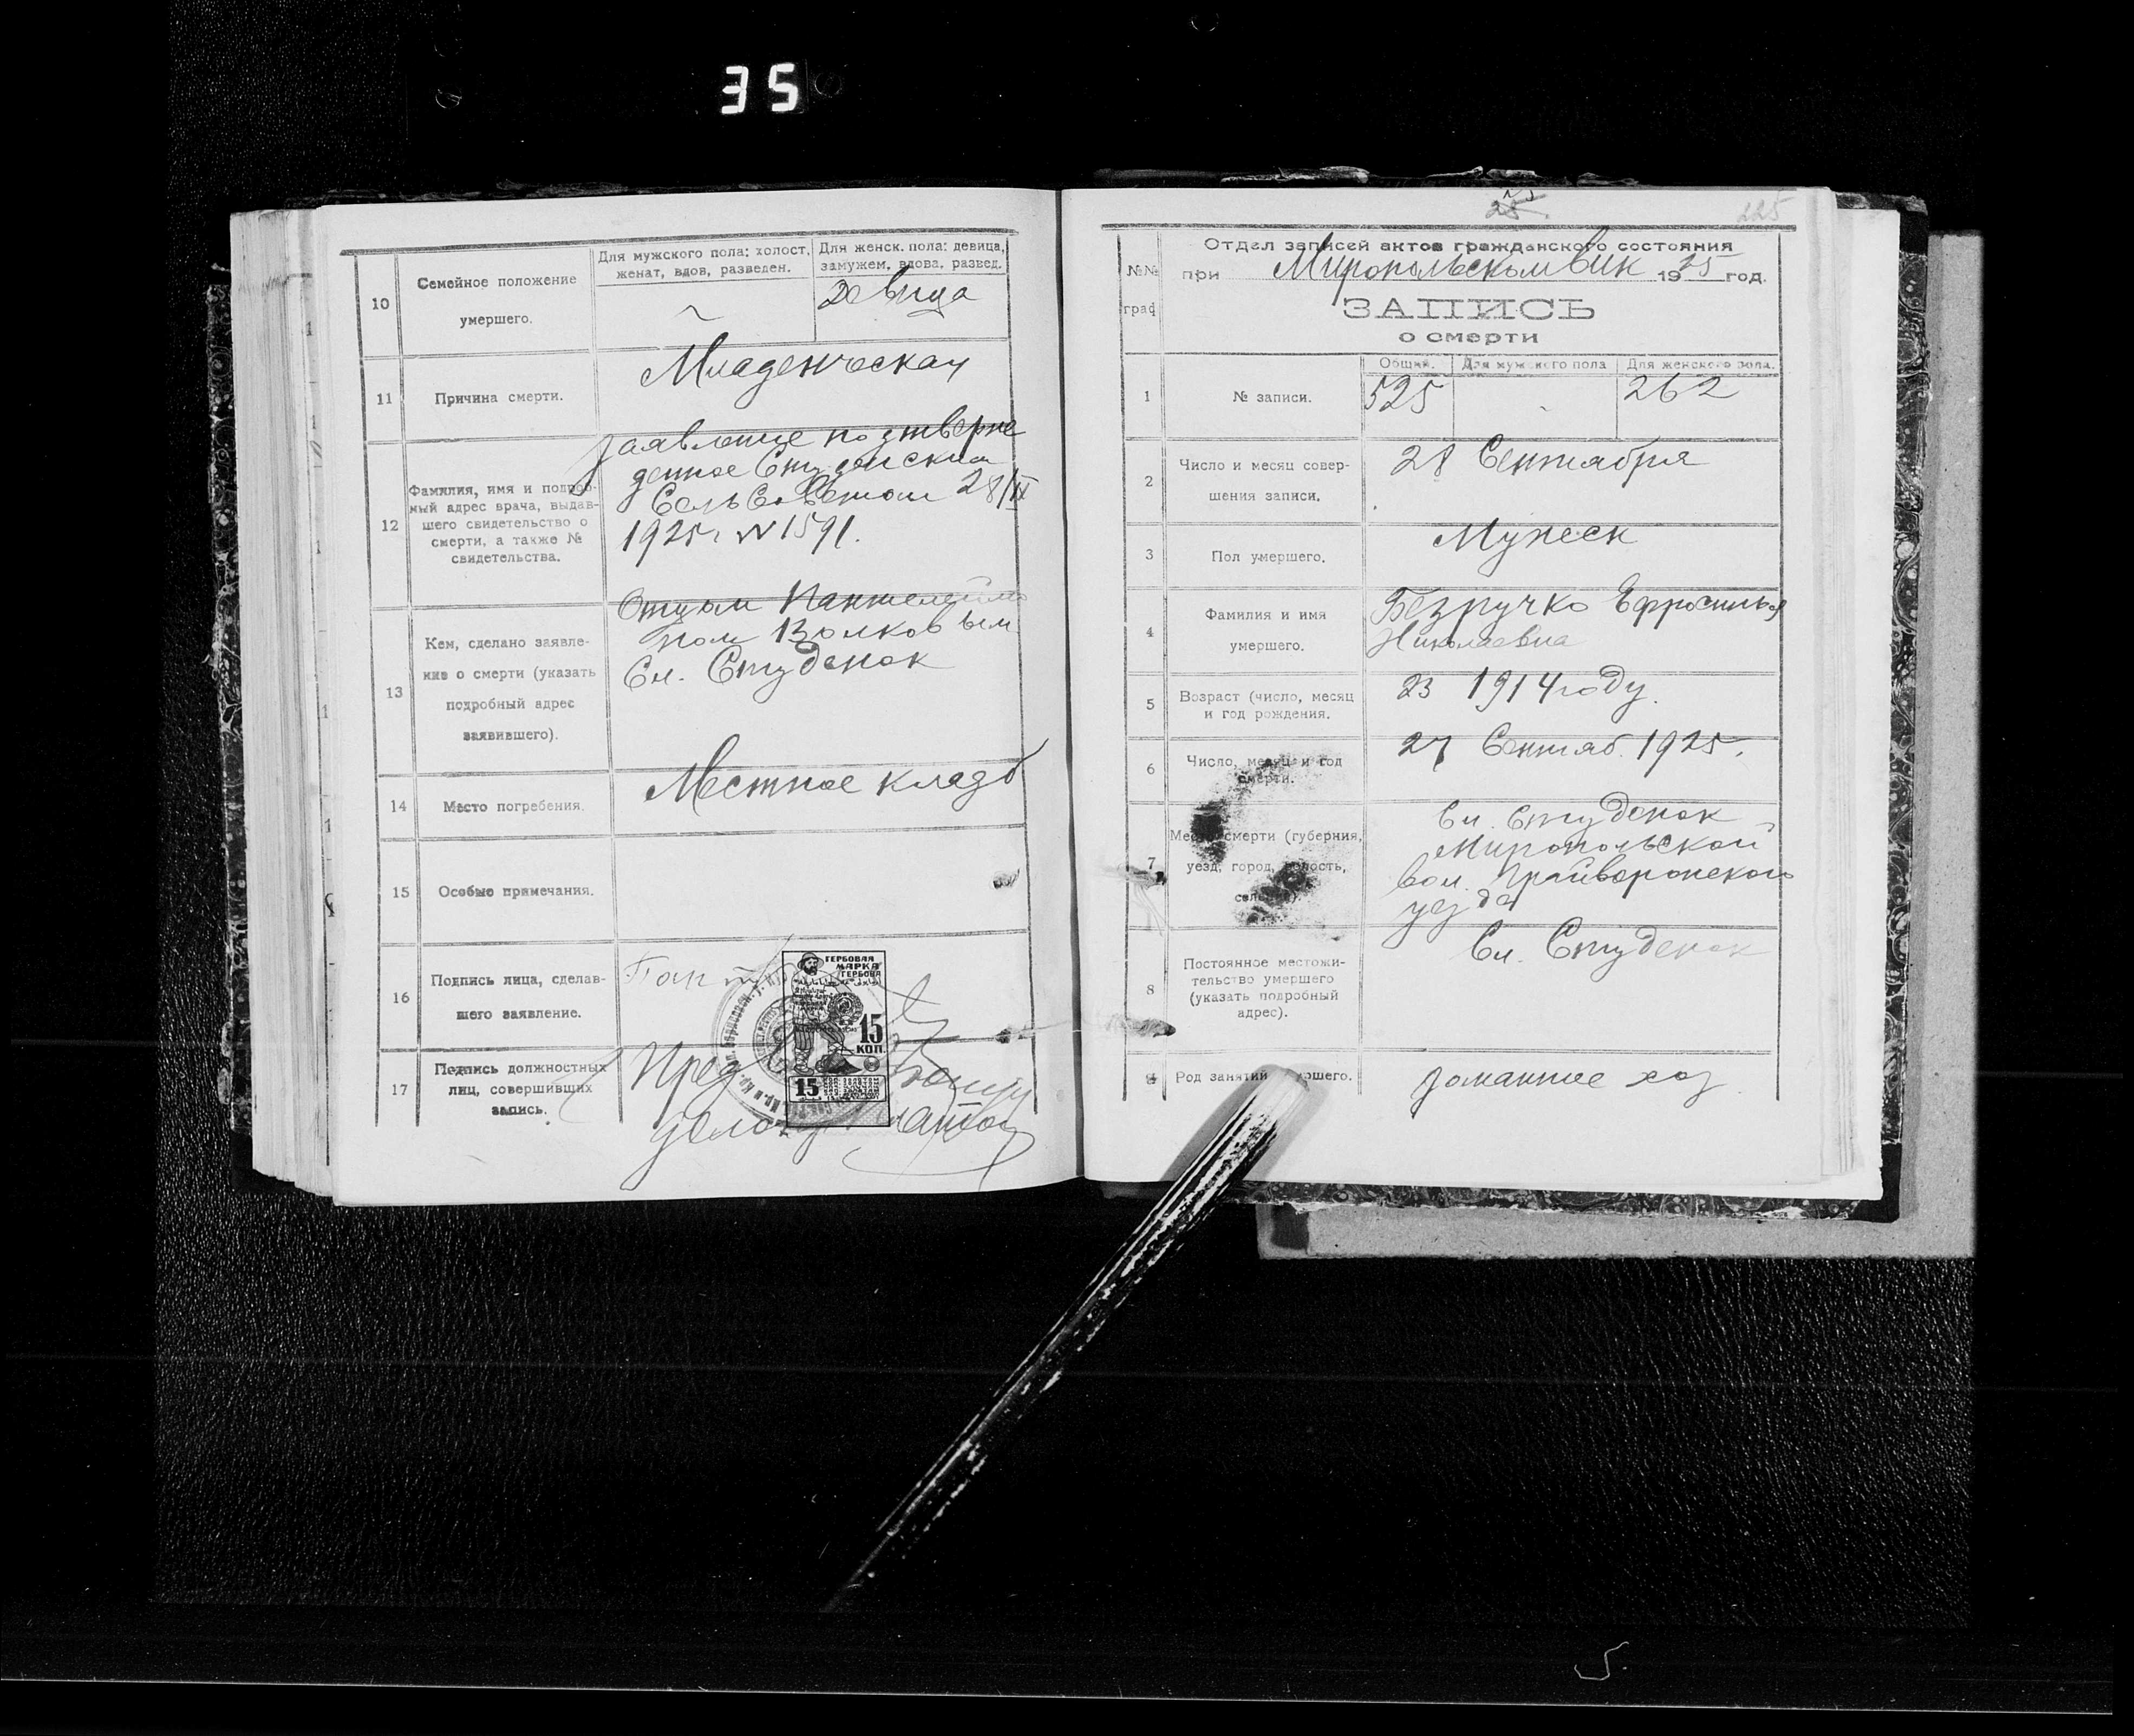 35
10
Семейное положение
умершего.
Для мужского пола: холост,
женат, вдов, разведен.
Для женск. пола: девица,
замужем, вдова, развед.
Девица
11
Причина смерти.
Младенческая
12
Фамилия, имя и подроб-
ный адрес врача, выдав-
шего свидетельство о
смерти, а также №
свидетельства.
Заявление подтверж
денное Студенским
СельСоветом 28/IX
1925г N 1591.
13
Кем, сделано заявле-
ние о смерти (указать
подробный адрес
заявившего).
Отцом Пантелеймо
ном Волковым
Сл. Студенок
14
Место погребения.
Местное кладб
15
Особые примечания.
16
Подпись лица, сделав-
шего заявление.
ГЕРБОВАЯ
МАРКА
ГЕРБОВА
15
КОП.
15
17
Подпись должностных
лиц, совершивших
запись.
Пред
225
№№
граф
Отдел записей актов гражданского состояния
при Миропольском Вик 1925 год.
ЗАПИСЬ
о смерти
Общий. Для мужского пола Для женского пола.
1
№ записи.
525 262
2
Число и месяц совер-
шения записи.
28 Сентября
3
Пол умершего.
Мужеск
4
Фамилия и имя
умершего.
Безручко Ефросинья
Николаевна
5
Возраст (число, месяц
и год рождения.
23 1914 году.
6
Число, месяц и год
смерти.
27 Сентяб. 1925.
7
Место смерти (губерния,
уезд, город, волость,
селение).
Сл. Студенок
Миропольской
вол. Грайворонского
уезда
8
Постоянное местожи-
тельство умершего
(указать подробный
адрес).
Сл. Студенок
9
Род занятий умершего.
домашнее хоз